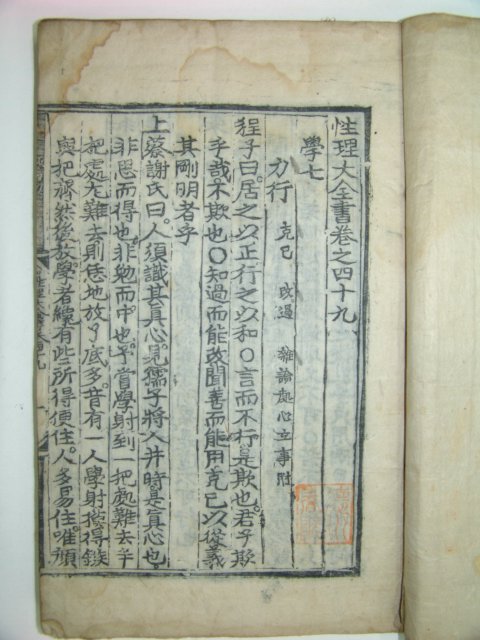 性理大全書卷之四十九
學七
力行 克己 改過 雜論處心立事附
程子曰居之以正行之以和○言而不行是欺也君子欺
乎哉不欺也○知過而能改聞善而能用克己以從義
其剛明者乎
上蔡謝氏曰人須識其真心見孺子將入井時是真心也
非思而得也非勉而中也予嘗學射到一把處難去半
把處尤難去則恁地放了底多昔有一人學射摸得鏃
與把齊然後放學者纔有些所得便住人多易住唯顏